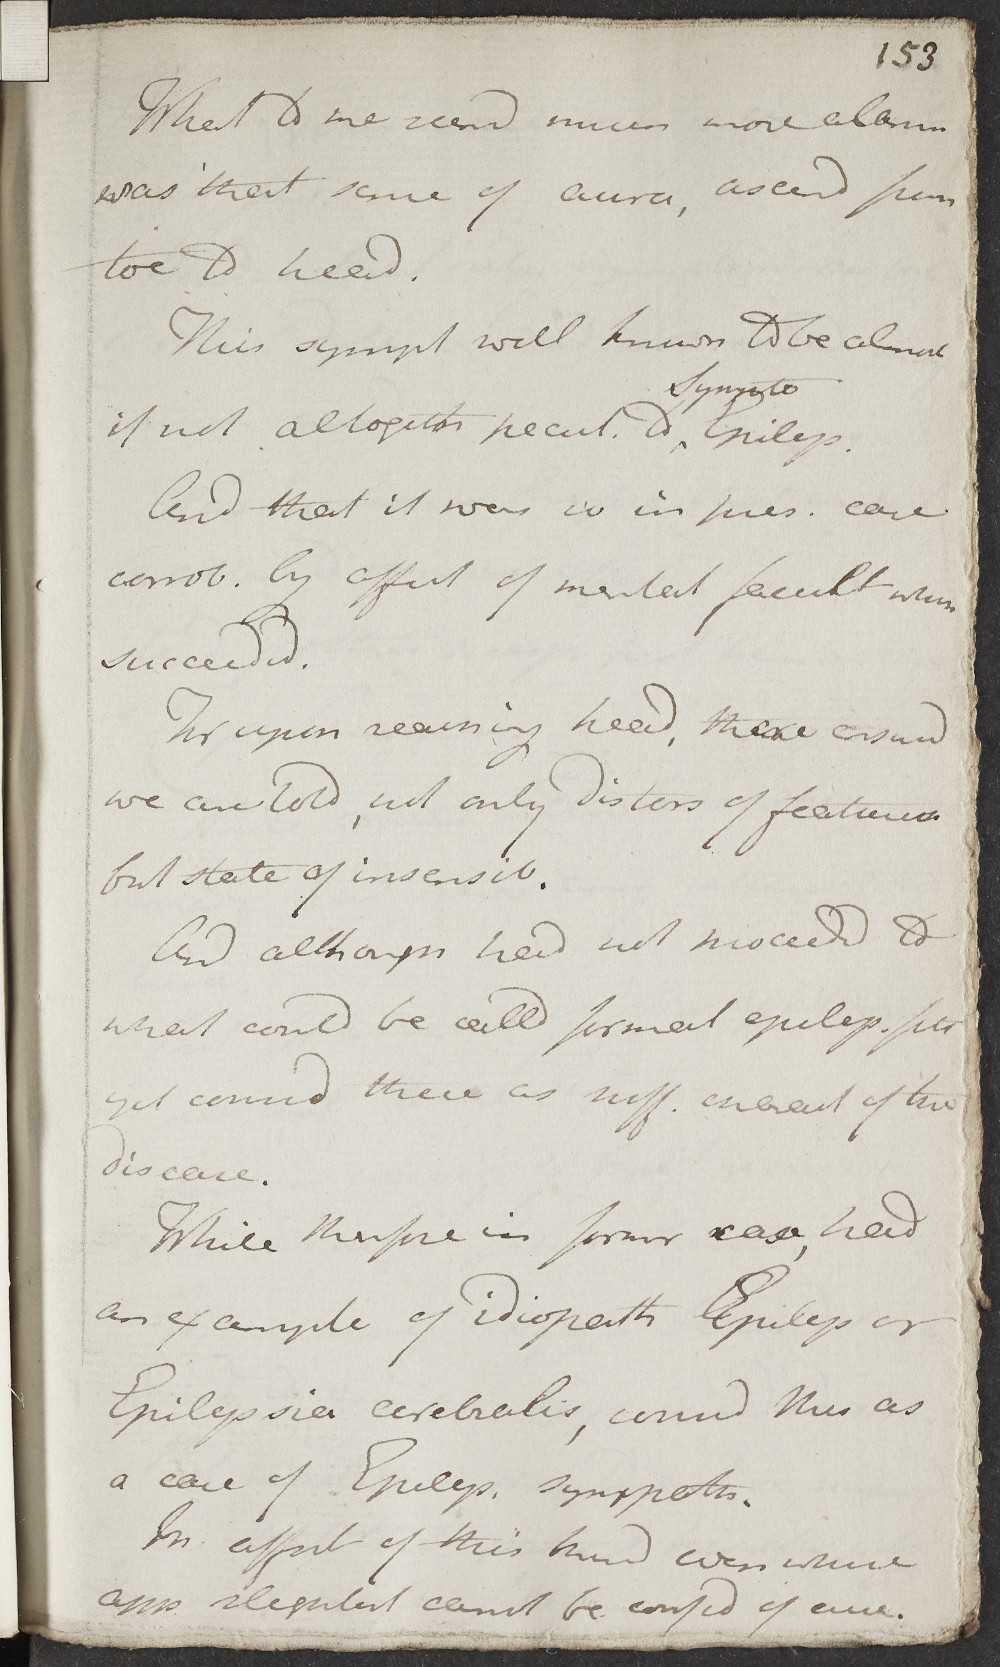 153
What to me seemd much more alarm
was that sense of aura, ascend from
toe to head.
This sympt well known to be almost
Sympto
if not altogeth pecul. to ^ Epilep.
And that it was so in pres. case
corrob. by affect of mental facult when
succeeded.
For upon reaching head, there ensud
we are told, not only distors of features
but state of insensib.
And although had not proceedd to
what could be calld formal epilep. fitt
yet consid there as suff. of the
disease.
While therefore in former case, had
an example of idiopath Epilep or
Epilepsia cerebralis, consid this as
a case of Epilep. sympath.
In affect of this kind even where
app slightest cannot be confid of cure.